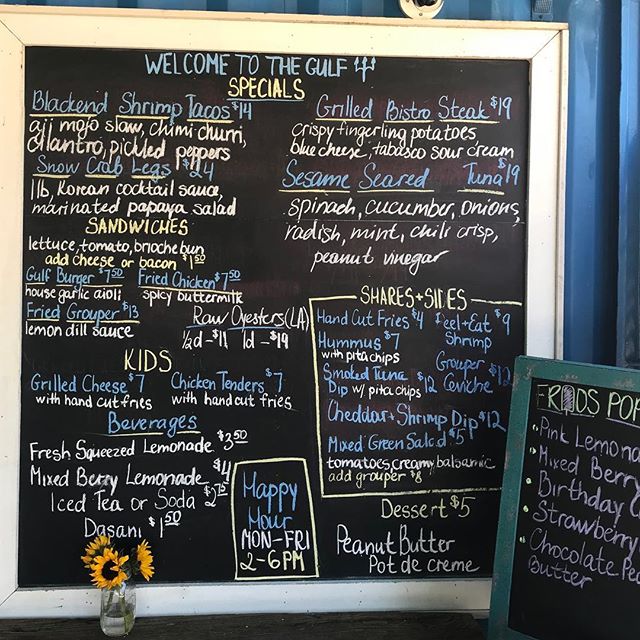 WELCOME TO THE GULF
SPECIALS
Blackend Shrimp Tacos $14
aji mojo slaw, chimi churri,
cilantro, pickled peppers
Snow Crab Legs $24
1lb, Korean cocktail sauce,
marinated papaya salad
Grilled Bistro Steak $19
crispy fingerling potatoes
blue cheese, tabasco sour cream
Sesame Seared Tuna $19
spinach, cucumber, onions,
radish, mint, chili crisp,
peanut vinegar
SANDWICHES
lettuce, tomato, brioche bun
add cheese or bacon $1.50
Gulf Burger $7.50
house garlic aioli
Fried Chicken $7.50
spicy buttermilk
Fried Grouper $13
lemon dill sauce
Raw Oysters (LA)
1/2d - $11 1d - $19
KIDS
Grilled Cheese $7
with hand cut fries
Chicken Tenders $7
with hand cut fries
Beverages
Fresh Squeezed Lemonade $3.50
Mixed Berry Lemonade $4
Iced Tea or Soda $2.75
Dasani $1.50
Happy
Hour
MON-FRI
2-6PM
SHARES + SIDES
Hand Cut Fries $4
Hummus $7
with pita chips
Smoked Tuna
Dip w/ pita chips $12
Peel + Eat $9
Shrimp
Grouper $12
Ceviche
Cheddar + Shrimp Dip $12
Mixed Green Salad $5
tomatoes, creamy balsamic
add grouper $8
Dessert $5
Peanut Butter
Pot de creme
FRODS POP
Pink Lemona
Mixed Berry
Birthday C
Strawberry
Chocolate Pe
Butter